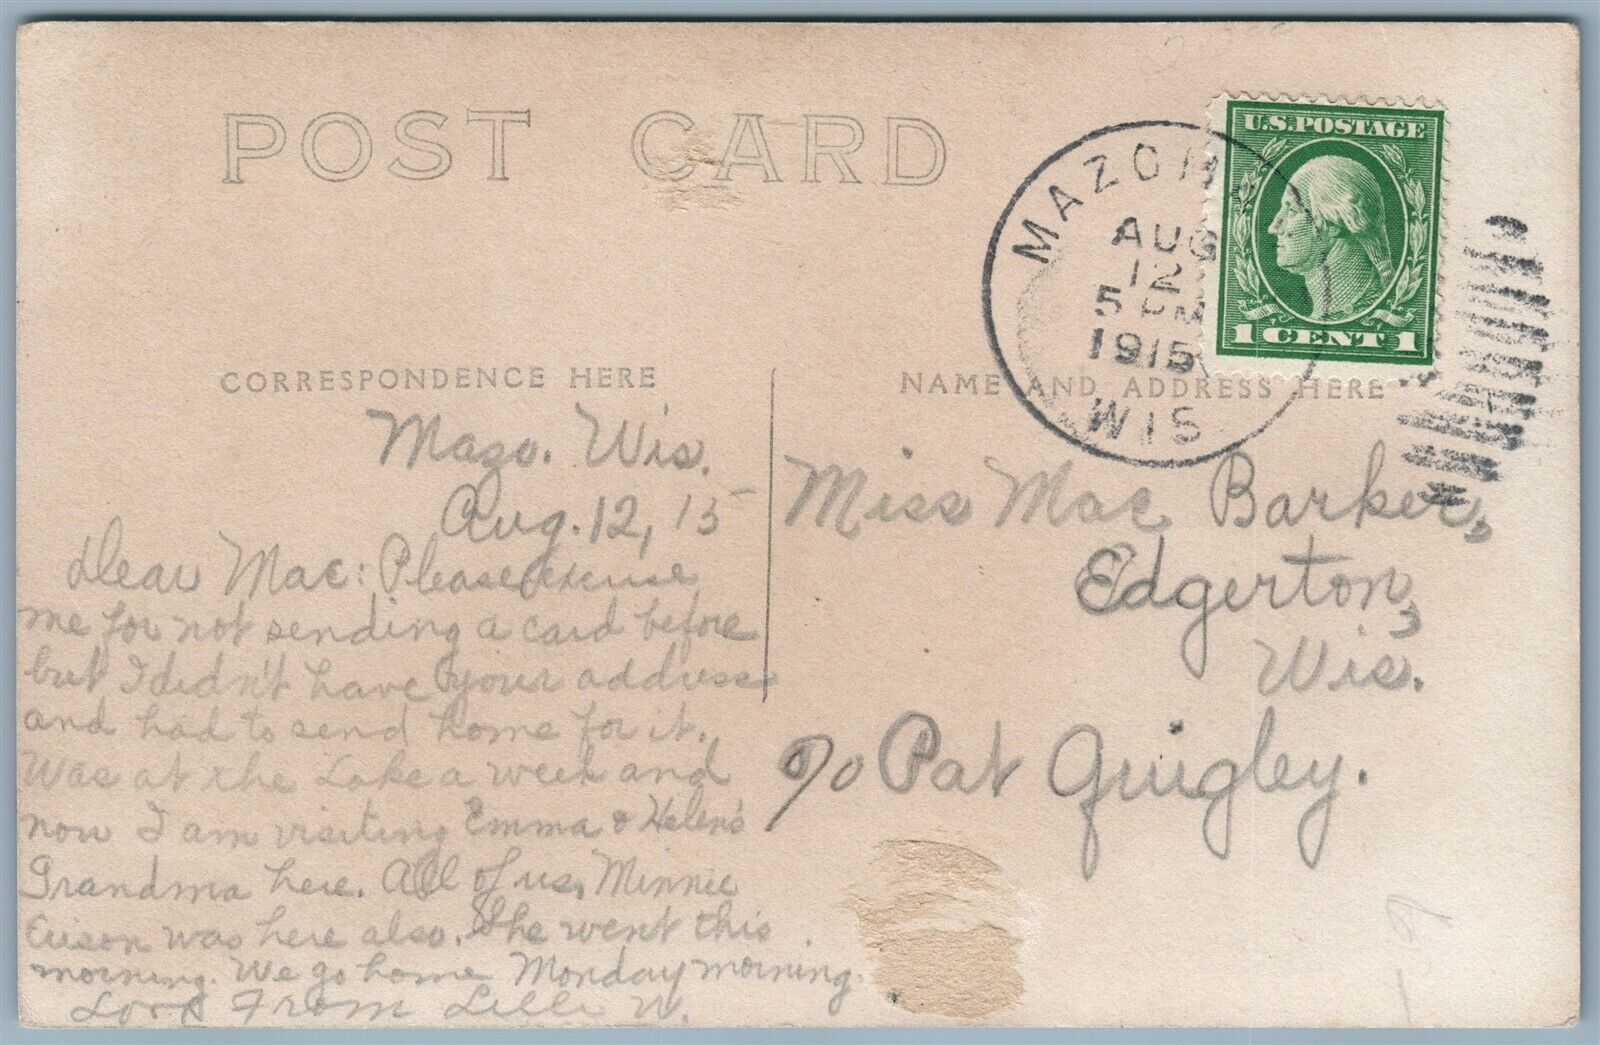 POST CARD
U.S. POSTAGE
1 CENT 1
MAZOMANIE
AUG
12
5 PM
1915
WIS
CORRESPONDENCE HERE
NAME AND ADDRESS HERE
Mazo. Wis.
Aug. 12, 15
Dear Mae: Please excuse
me for not sending a card before
but I didn't have your address
and had to send home for it.
Was at the Lake a week and
now I am visiting Emma & Helen's
Grandma here. All of us, Minnie
was here also. She went this
morning. We go home Monday morning.
Love From W.
Miss Mae Barker,
Edgerton,
Wis.
c/o Pat Quigley.